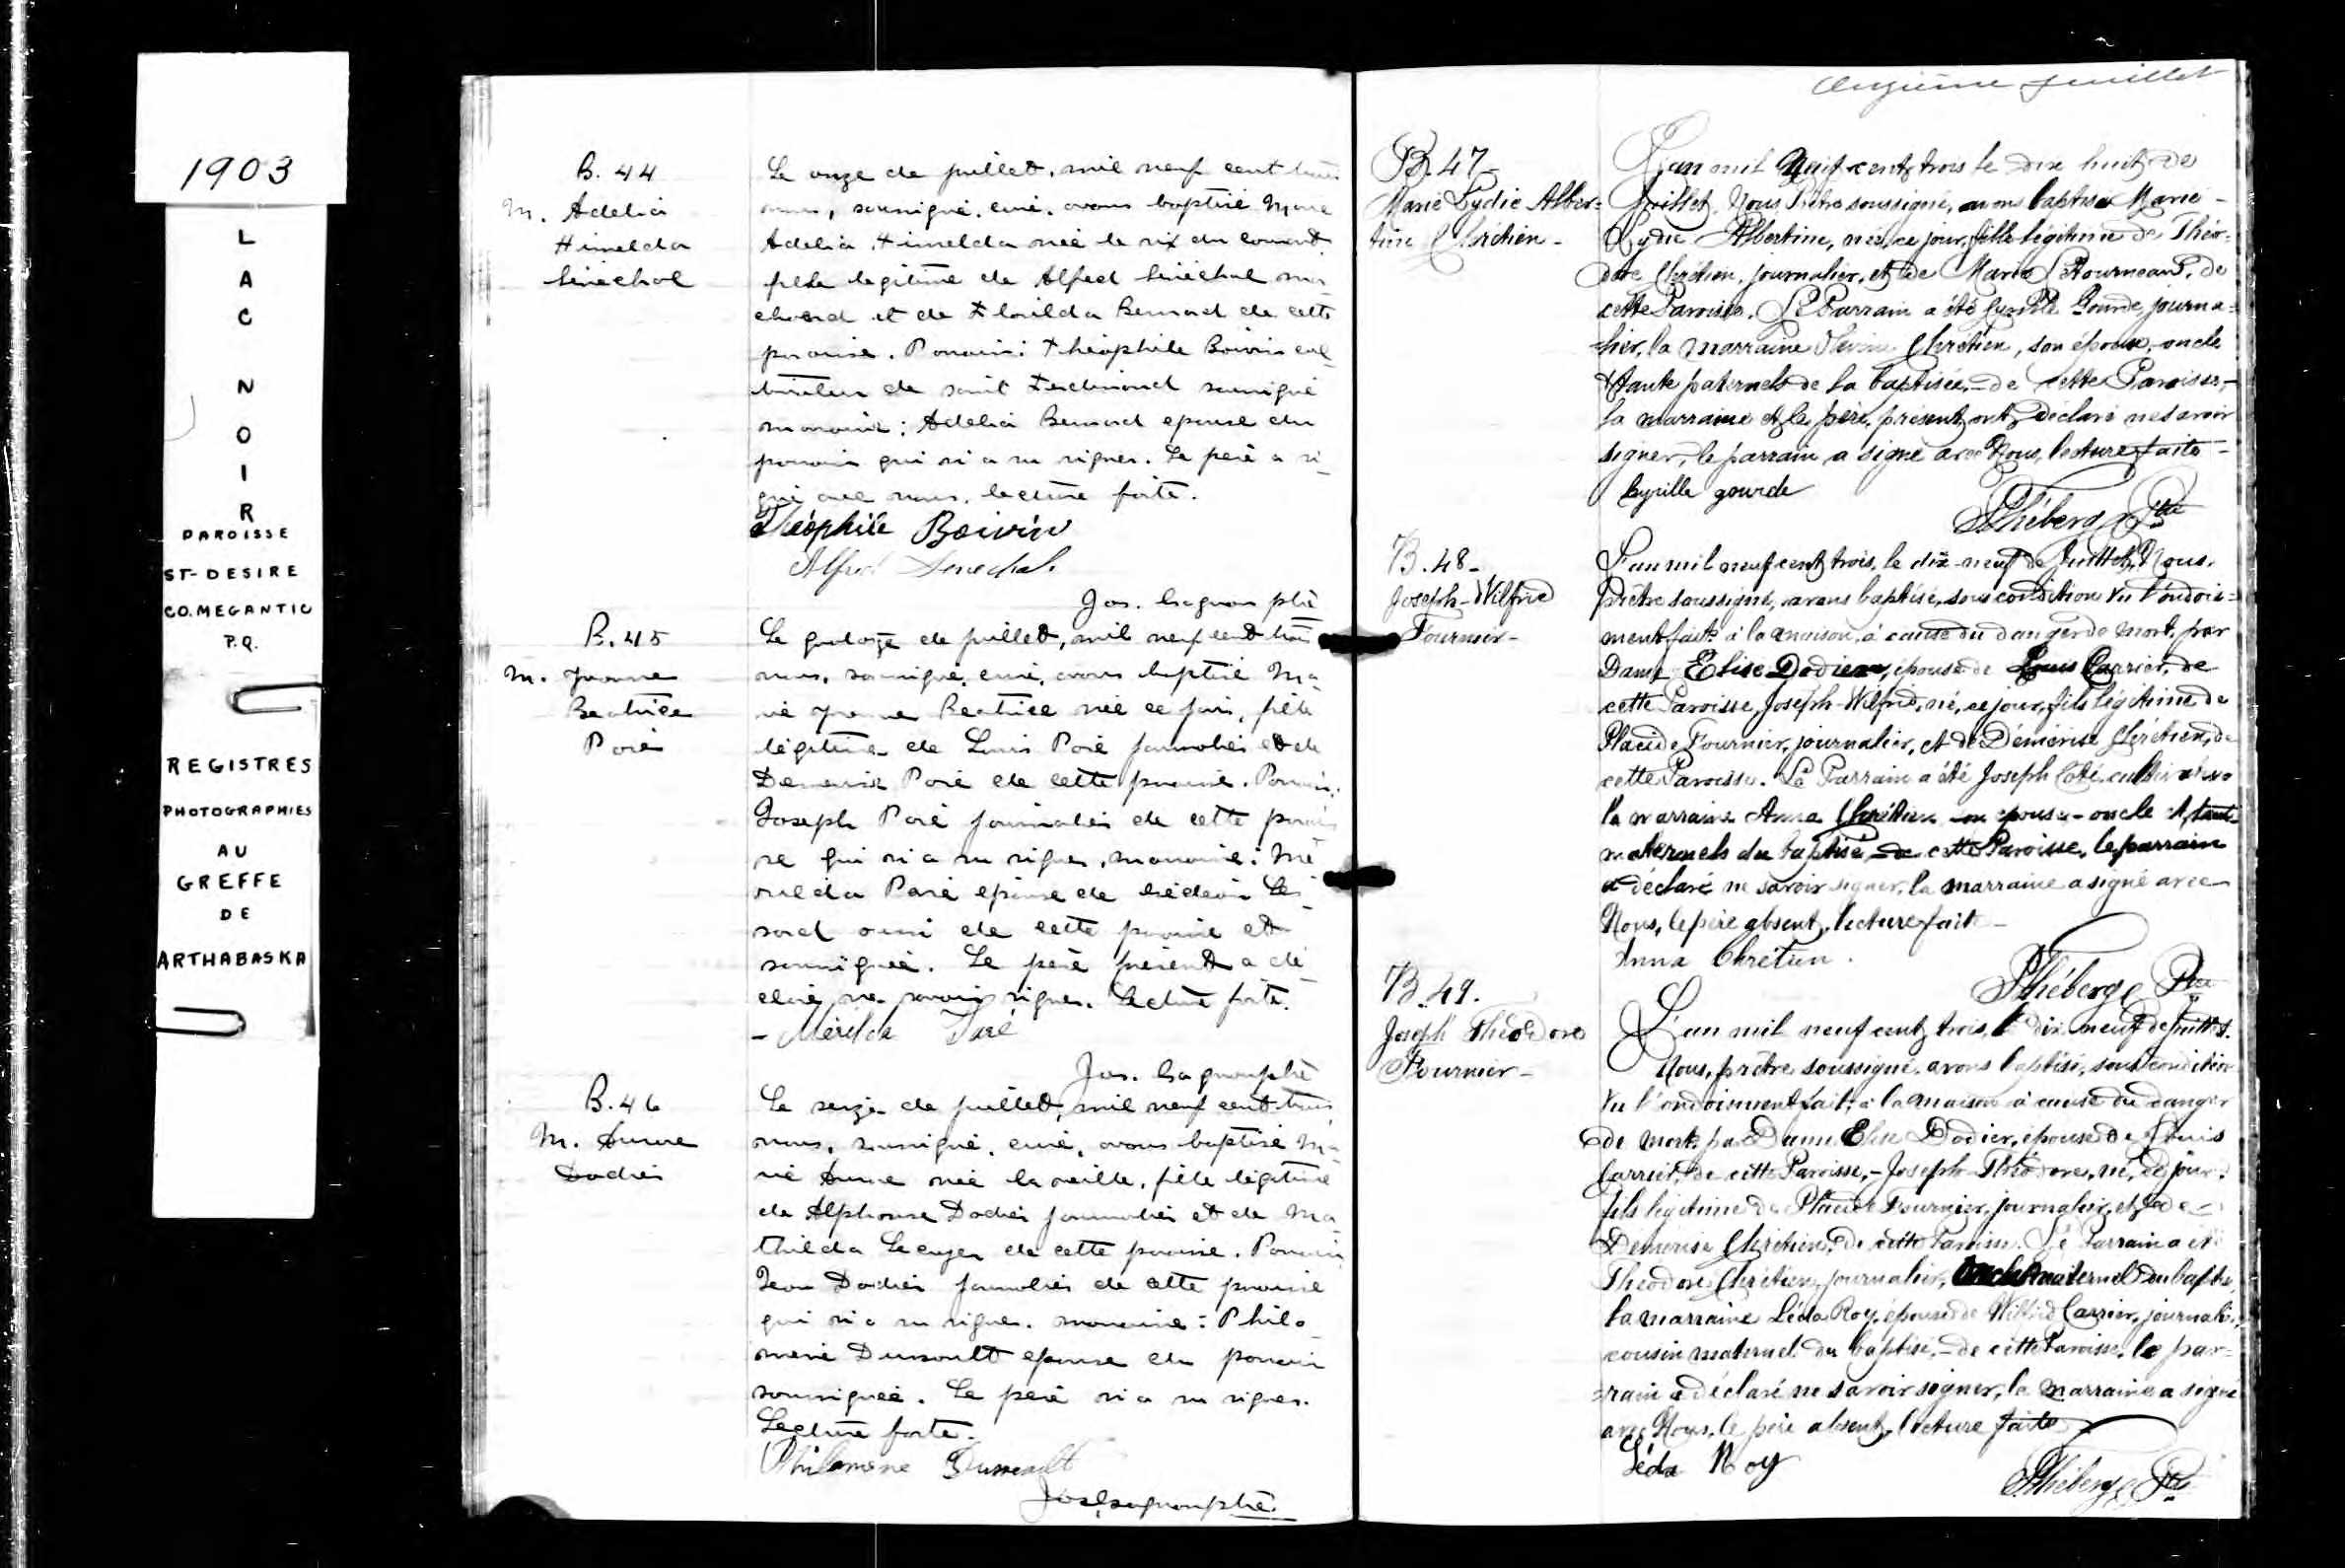 1903
L
A
C
N
O
I
R
PAROISSE
ST-DESIRE
CO. MEGANTIC
P.Q.
REGISTRES
PHOTOGRAPHIES
AU
GREFFE
DE
ARTHABASKA
B. 44
M. Adelia
Himelda
Sénéchal
Le onze de juillet, mil neuf cent trois
nous, soussigné, curé, avons baptisé Marie
Adelia Himelda née le six du courant
fille legitime de Alfred Sénéchal mar
chand et de Bernard de cette
paroisse. Parrain: Théophile Boivin cul
tivateur de saint Ferdinand soussigné
marraine: Adelia Bernard epouse du
parrain qui n'a su signer. Le père a si
gné avec nous. lecture faite.
Théophile Boivin
Alfred Senechal
Jos. Gagnon ptre
B. 45
M. Yvonne
Beatrice
Paré
Le quatorze de juillet, mil neuf cent trois
nous, soussigné, curé, avons baptisé Ma
rie Yvonne Beatrice née ce jour, fille
légitime de Louis Paré journalier et de
Demerise Paré de cette paroisse. Parrain:
Joseph Paré journalier de cette parois
se qui n'a su signer, marraine: Mé
rilda Paré epouse de Les
sard aussi de cette paroisse et
soussignée. Le père présent a dé
claré ne savoir signer. Lecture faite.
- Mérilda Paré
Jos. Gagnon ptre
B. 46
M. Anne
Dodier
Le seize de juillet, mil neuf cent trois
nous, soussigné, curé, avons baptisé Ma
rie Anne née la veille, fille légitime
de Alphonse Dodier journalier et de Ma
thilda de cette paroisse. Parrain
Jean Dodier journalier de cette paroisse
qui n'a su signer. marraine: Philo
mène Dussault epouse du parrain
soussignée. Le père n'a su signer.
Lecture faite.
Philomène Dussault
Jos. Gagnon ptre.
onzième feuillet
B. 47-
Marie Lydie Alber=
tine Chrétien-
L'an mil neuf cent trois le dix huit de
Juillet, Nous Prêtre soussigné, avons baptisé Marie-
Lydie Albertine, née, ce jour, fille légitime de Théo=
dore Chrétien, journalier, et de Marie de
cette Paroisse. Le Parrain a été Cyrille Gourde, journa=
=lier, la marraine Chrétien, son épouse, oncle
& tante paternels de la baptisée,- de cette Paroisse,-
la marraine et le père, présent, ont déclaré ne savoir
signer, le parrain a signé avec Nous, lecture faite-
Cyrille gourde
Théberge Ptre
B. 48-
Joseph-Wilfrid
Fournier-
L'an mil neuf cent trois, le dix-neuf de Juillet, Nous,
prêtre soussigné, avons baptisé, sous condition vu l'ondoie=
ment fait à la maison, à cause du danger de mort, par
Dame Elise Dodier, épouse de Louis Carrier, de
cette Paroisse, Joseph-Wilfrid, né, ce jour, fils légitime de
Placide Fournier, journalier, et de Démérise Chrétien, de
cette Paroisse. Le Parrain a été Joseph Coté, cultivateur
la marraine Anna Chrétien son épouse- oncle et tante
maternels du baptisé, de cette Paroisse, le parrain
a déclaré ne savoir signer, la marraine a signé avec
Nous, le père absent, lecture faite-
Anna Chrétien.
Théberge Ptre
B. 49.
Joseph Théodore
Fournier-
L'an mil neuf cent trois, le dix-neuf de Juillet.
Nous, prêtre soussigné, avons baptisé, sous condition
vu l'ondoiement fait, à la maison à cause du danger
de mort, par Dame Elise Dodier, épouse de Louis
Carrier, de cette Paroisse,- Joseph-Théodore, né, ce jour,
fils légitime de Placide Fournier, journalier, et de
Démérise Chrétien, de cette Paroisse. Le Parrain a été
Théodore Chrétien, journalier, oncle maternel du baptisé,
la marraine Léda Roy, épouse de Wilfrid Carrier, journalier,
cousin maternel du baptisé,- de cette Paroisse, le par=
=rain a déclaré ne savoir signer, la marraine a signé
avec Nous, le père absent, lecture faite
Léda Roy
Théberge Ptre